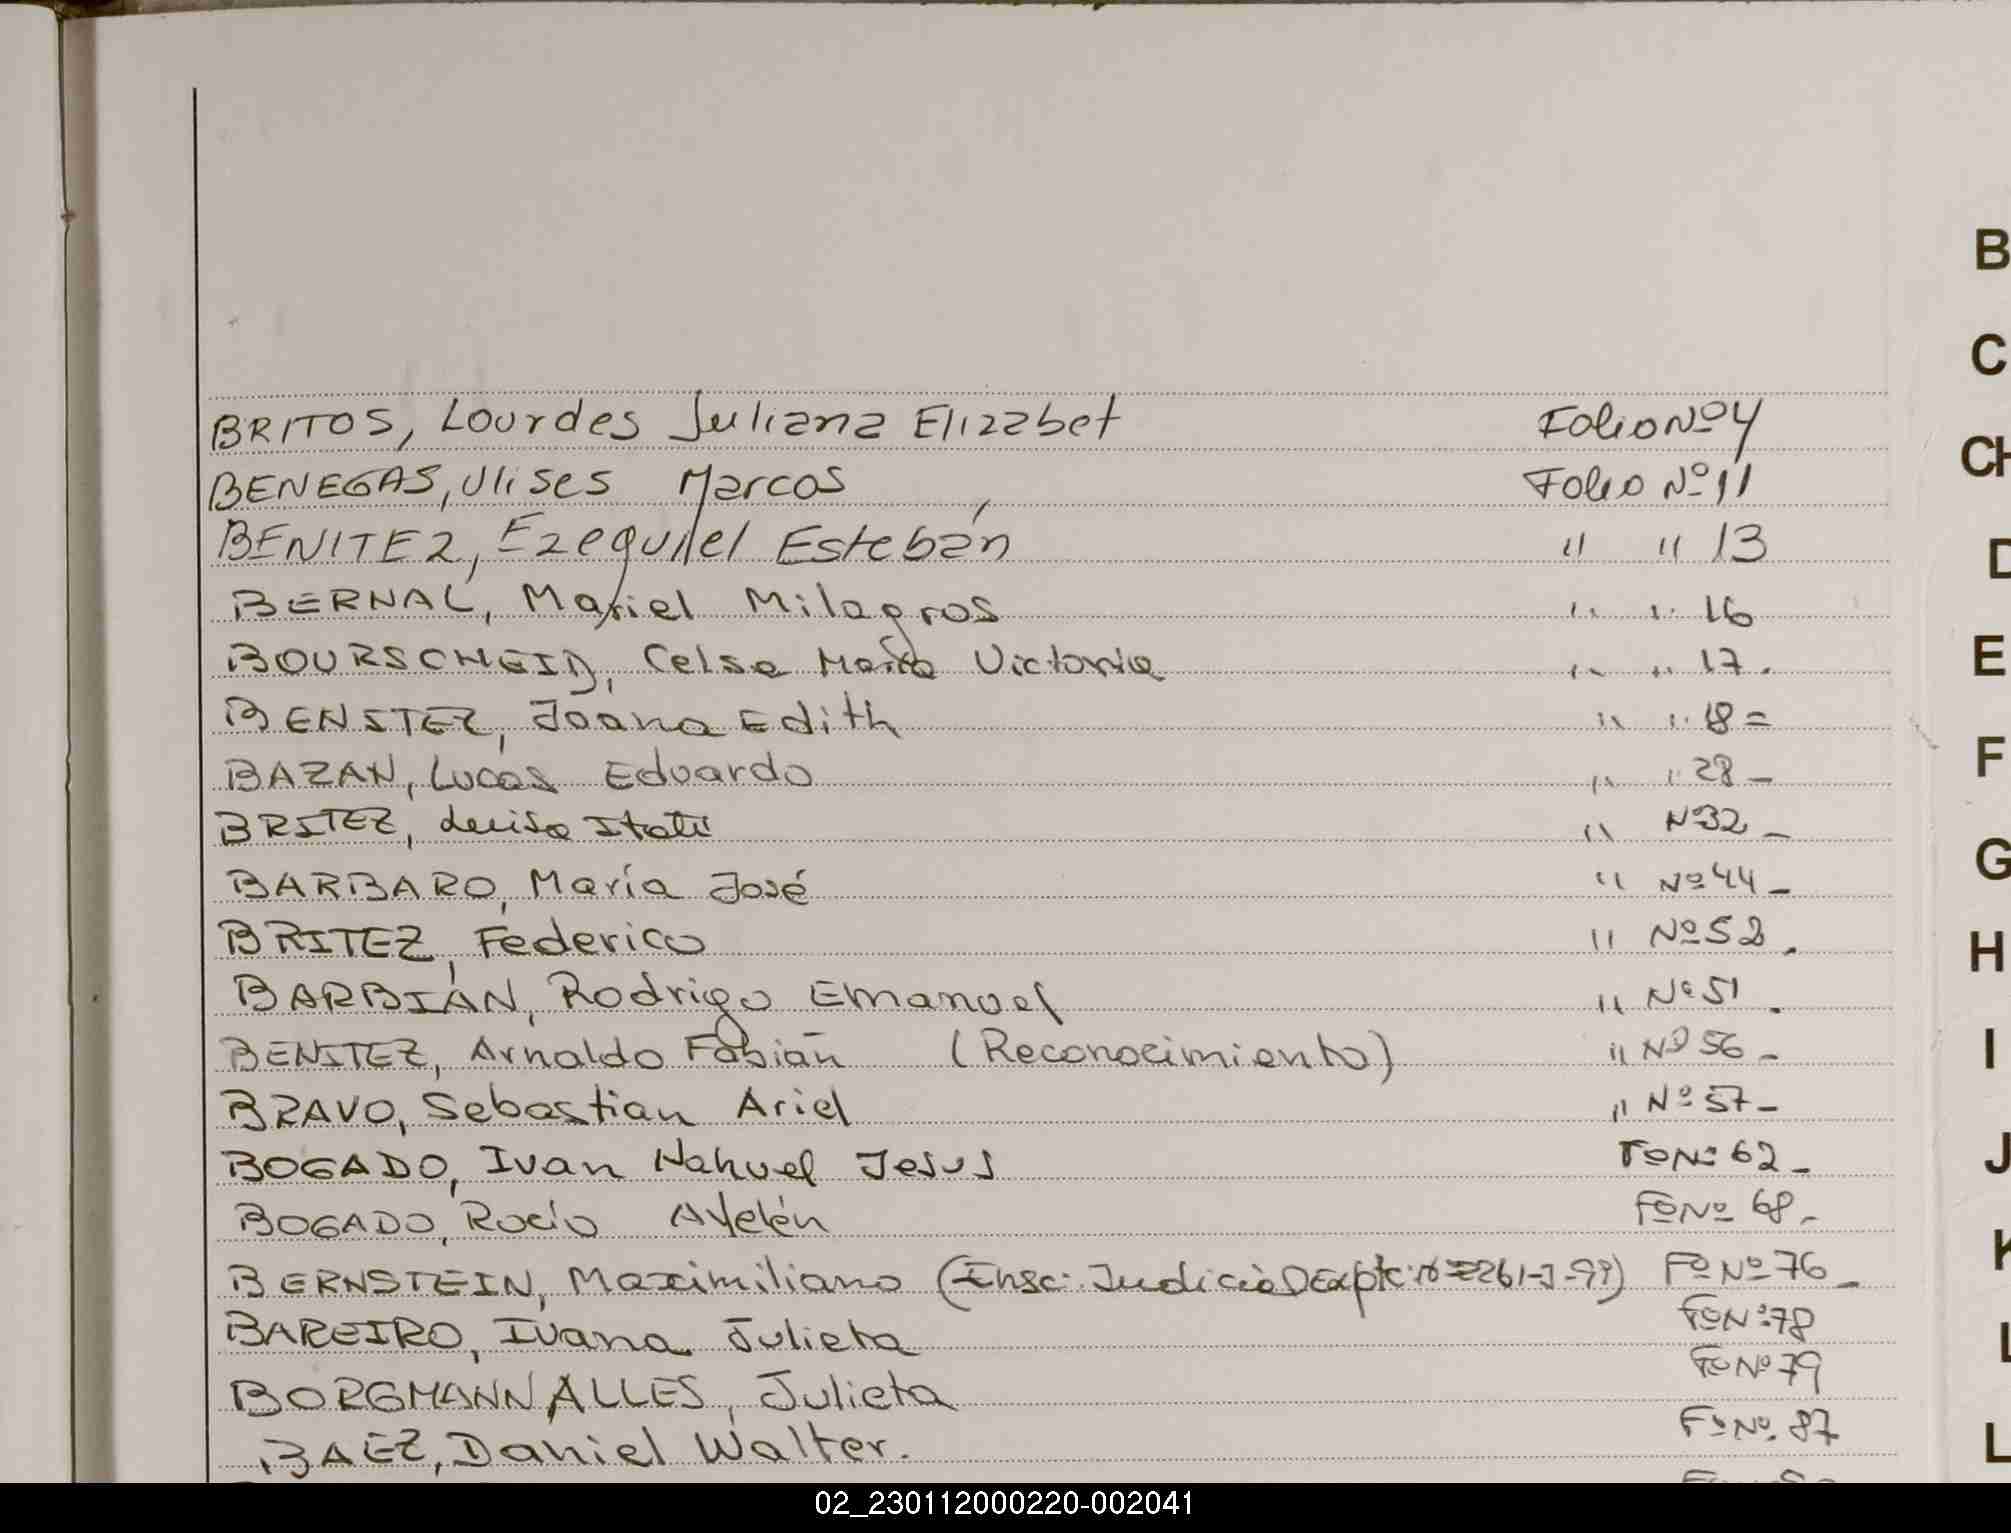 BRITOS, Lourdes Juliana Elizabet Folio Nº 4
BENEGAS, Ulises Marcos Folio Nº 11
BENITEZ, Ezequiel Estebán " " 13
BERNAL, Mariel Milagros " " 16
BOURSCHEID, Celsa María Victoria " " 17.
BENITEZ, Joana Edith " " 18=
BAZAN, Lucas Eduardo " " 28-
BRITEZ, Luisa Itatí " Nº 32-
BARBARO, María José " Nº 44-
BRITEZ, Federico " Nº 52.
BARBIÁN, Rodrigo Emanuel " Nº 51.
BENITEZ, Arnaldo Fabián (Reconocimiento) " Nº 56-
BRAVO, Sebastian Ariel " Nº 57-
BOGADO, Ivan Nahuel Jesus Fº Nº 62-
BOGADO, Rocío Ayelén Fº Nº 68-
BERNSTEIN, Maximiliano (Insc. Judicial Expte. Fº Nº 76-
BAREIRO, Ivana Julieta Fº Nº 78
BORGMANN ALLES, Julieta Fº Nº 79
BAEZ, Daniel Walter. Fº Nº 87
B
C
CH
D
E
F
G
H
I
J
K
L
L
02_230112000220-002041